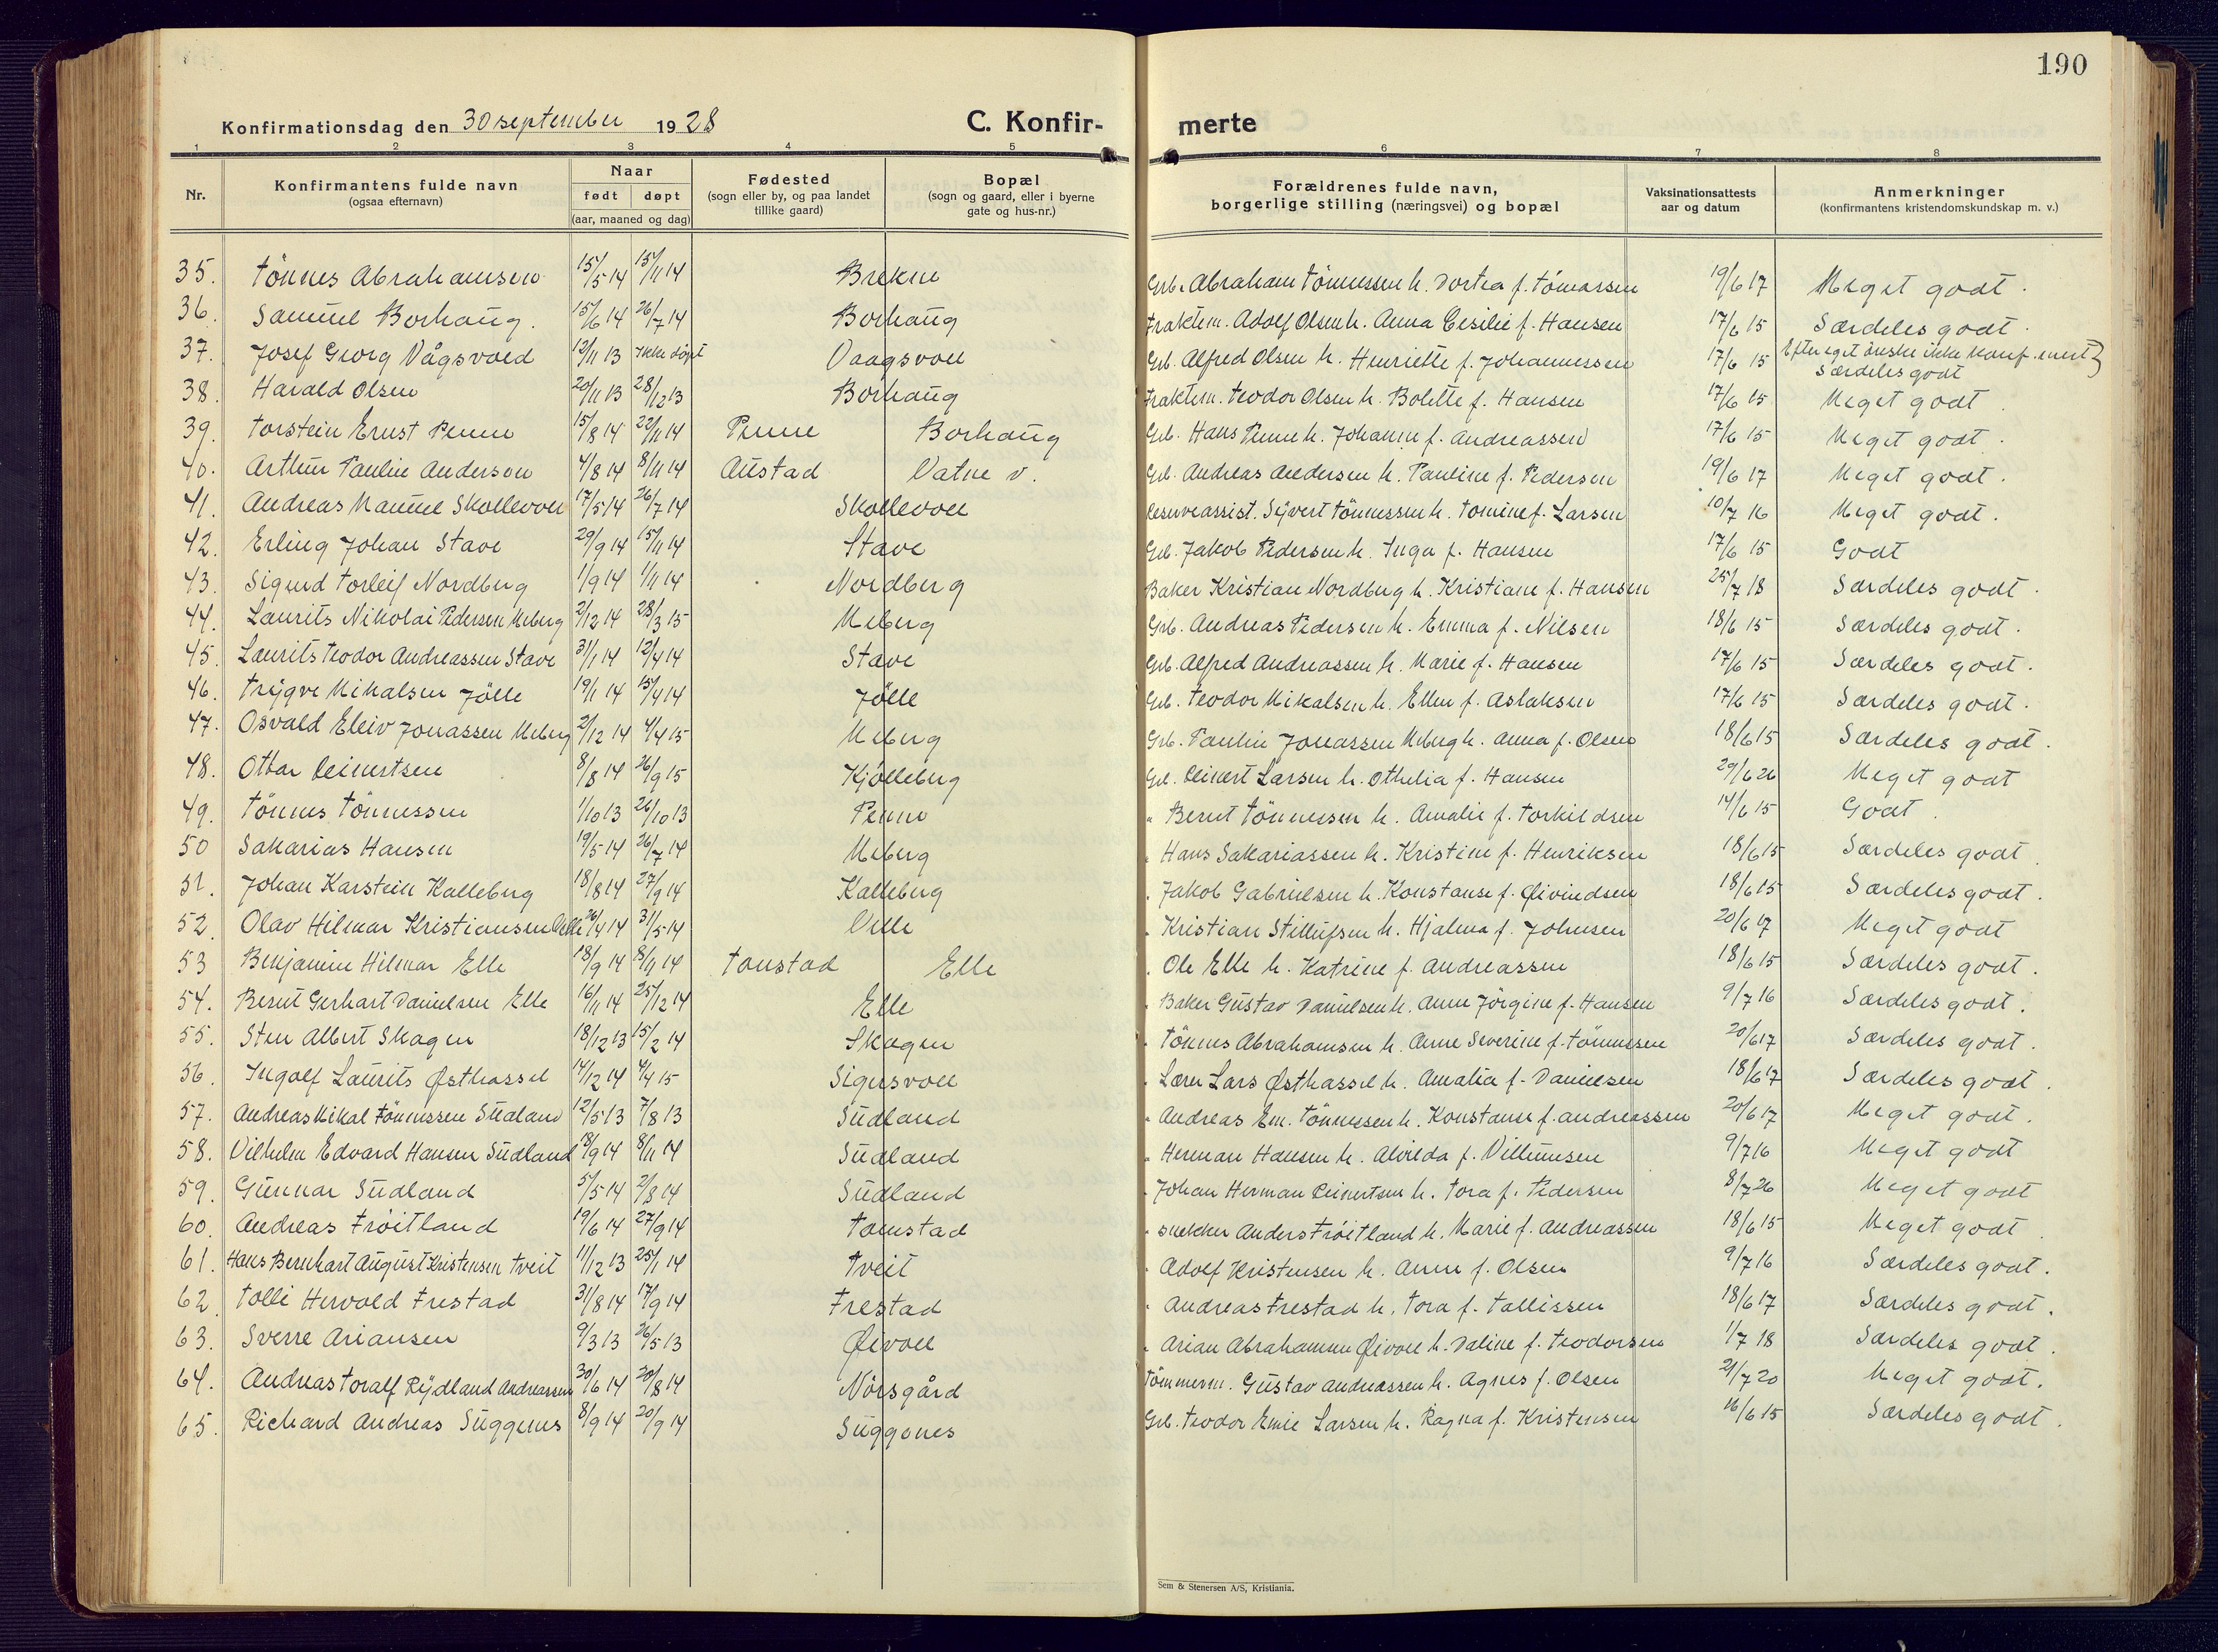 190
Konfirmationsdag den 30 september 1928 C. Konfir- merte
1 2 3 4 5 6 7 8
Nr. Konfirmantens fulde navn (ogsaa efternavn) Naar født døpt (aar, maaned og dag) Fødested (sogn eller by, og paa landet tillike gaard) Bopæl (sogn og gaard, eller i byerne gate og hus-nr.) Forældrenes fulde navn, borgerlige stilling (næringsvei) og bopæl Vaksinationsattests aar og datum Anmerkninger (konfirmantens kristendomskundskap m. v.)
35. Tönnes Abrahamsen 15/5 14 15/11 14 Brekne Grb. Abraham Tönnessen h. Dortea f. Tömassen 19/6 17 Meget godt.
36. Samuel Borhaug. 15/6 14 26/7 14 Borhaug Fraktem. Adolf Olsen h. Anna Cesilie f. Hansen 17/6 15 Særdeles godt.
37. Josef Georg Vågsvold 12/11 13 Ikke døpt Vaagsvoll Grb. Alfred Olsen h. Henriette f. Johannessen 17/6 15 Efter eget önske ikke konf. mert} Særdeles godt
38. Harald Olsen 20/11 13 28/12 13 Borhaug Fraktem. Teodor Olsen h. Bolette f. Hansen 17/6 15 Meget godt.
39. Torstein Ernst Penne 15/8 14 22/11 14 Penne Borhaug Grb. Hans Penne h. Johanne f. Andreassen 17/6 15 Meget godt.
40. Arthur Paulin Andersen 4/8 14 8/11 14 Austad Vatne v. Grb. Andreas Andersen h. Pauline f. Pedersen 19/6 17 Meget godt.
41. Andreas Manuel Skollevoll 17/5 14 26/7 14 Skollevoll Reserveassist. Syvert Tönnessen h. Tomine f. Larsen 10/7 16 Meget godt.
42. Erling Johan Stave 29/9 14 15/11 14 Stave Grb. Jakob Pedersen h. Inga f. Hansen 17/6 15 Godt
43. Sigurd Torleif Nordberg 1/9 14 1/11 14 Nordberg Baker Kristian Nordberg h. Kristiane f. Hansen 25/7 18 Særdeles godt.
44. Laurits Nikolai Pedersen Meberg 2/12 14 28/3 15 Meberg Grb. Andreas Pedersen h. Emma f. Nilsen 18/6 15 Særdeles godt.
45. Laurits Teodor Andreassen Stave 31/1 14 12/4 14 Stave Grb. Alfred Andreassen h. Marie f. Hansen 17/6 15 Særdeles godt.
46. Trygve Mikalsen Jölle 19/1 14 15/4 14 Jölle Grb. Teodor Mikalsen h. Ellen f. Aslaksen 17/6 15 Særdeles godt.
47. Osvald Eleiv Jonassen Meberg 2/12 14 4/4 15 Meberg Grb. Paulin Jonassen Meberg h. Anna f. Olsen 18/6 15 Særdeles godt.
48. Ottar Reinertsen 8/8 14 26/9 15 Kjölleberg Grb. Reinert Larsen h. Othelia f. Hansen 29/6 26 Meget godt
49. Tönnes Tönnessen 1/10 13 26/10 13 Penne " Bernt Tönnessen h. Amalie f. Torkildsen 14/6 15 Godt.
50 Sakarias Hansen 19/5 14 26/7 14 Meberg " Hans Sakariassen h. Kristine f. Henriksen 18/6 15 Særdeles godt.
51. Johan Karstein Kalleberg 18/8 14 27/9 14 Kalleberg " Jakob Gabrielsen h. Konstanse f. Øivindsen 18/6 15 Særdeles godt.
52. Olav Hilmar Kristiansen Velle 26/4 14 31/5 14 Velle " Kristian Stillufsen h. Hjalma f. Johnsen 20/6 17 Meget godt
53 Benjamin Hilmar Elle 18/9 14 8/11 14 Tonstad Elle " Ole Elle h. Katrine f. Andreassen 18/6 15 Særdeles godt.
54. Bernt Gerhart Danielsen Elle 16/11 14 25/12 14 Elle " Baker Gustav Danielsen h. Anne Jörgine f. Hansen 9/7 16 Særdeles godt.
55. Sten Albert Skagen 18/12 13 15/2 14 Skagen " Tönnes Abrahamsen h. Anne Severine f. Tönnessen 20/6 17 Særdeles godt.
56. Ingolf Laurits Østhassel 14/12 14 4/4 15 Sigersvoll " Lærer Lars Østhassel h. Amalia f. Danielsen 18/6 17 Særdeles godt.
57. Andreas Mikal Tönnessen Sudland 12/5 13 7/8 13 Sudland " Andreas Em. Tönnessen h. Konstanse f. Andreassen 20/6 17 Meget godt.
58. Vilhelm Edvard Hansen Sudland 18/9 14 8/11 14 Sudland " Herman Hansen h. Alvilda f. Villumsen 9/7 16 Meget godt
59. Gunnar Sudland 5/5 14 2/8 14 Sudland " Johan Herman Reinertsen h. Tora f. Pedersen 8/7 26 Meget godt
60. Andreas Fröitland 19/6 14 27/9 14 Tomstad " snekker Anders Fröitland h. Marie f. Andreassen 18/6 15 Meget godt.
61. Hans Bernhart August Kristensen Tveit 11/12 13 25/1 14 Tveit " Adolf Kristensen h. Anne f. Olsen 9/7 16 Særdeles godt.
62. Tolli Hervold Frestad 31/8 14 17/9 14 Frestad " Andreas Frestad h. Tora f. Tallissen 18/6 17 Særdeles godt.
63. Sverre Ariansen 9/3 13 26/5 13 Øivoll " Arian Abrahamsen Øivoll h. Valine f. Teodorsen 1/7 18 Særdeles godt.
64. Andreas Toralf Rydland Andreassen 30/6 14 20/8 14 Nörsgård Tömmerm. Gustav Andreassen h. Agnes f. Olsen 21/7 20 Meget godt.
65. Richard Andreas Suggenes 8/9 14 20/9 14 Suggenes Grb. Teodor Emil Larsen h. Ragna f. Kristensen 16/6 15 Særdeles godt.
Sem & Stenersen A/S, Kristiania.